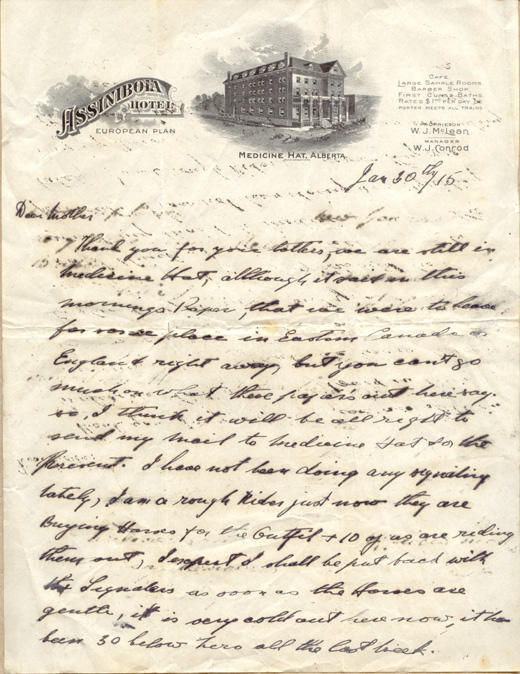 ASSINIBOIA
HOTEL
EUROPEAN PLAN
MEDICINE HAT, ALBERTA
CAFE
LARGE SAMPLE ROOMS
BARBER SHOP
FIRST CLASS BATHS
RATES $1.00 PER DAY UP
PORTER MEETS ALL TRAINS
PROPRIETOR
W.J. McLean
MANAGER
W.J. Conrod
Jan 30th/15
Dear Mother
Thank you for your letter, we are still in
Medicine Hat, although it said in this
mornings Paper, that we were to leave
for some place in Eastern Canada or
England right away, but you cant go
much on what these papers out here say.
so, I think it will be all right to
send my mail to Medicine Hat for the
present. I have not been doing any signaling
lately, I am a rough Rider just now they are
Buying Horses for the Outfit + 10 of us are riding
them out, I expect I shall be put back with
the Signalers as soon as the Horses are
gentle, it is very cold out here now, it has
been 30 below zero all the last week.